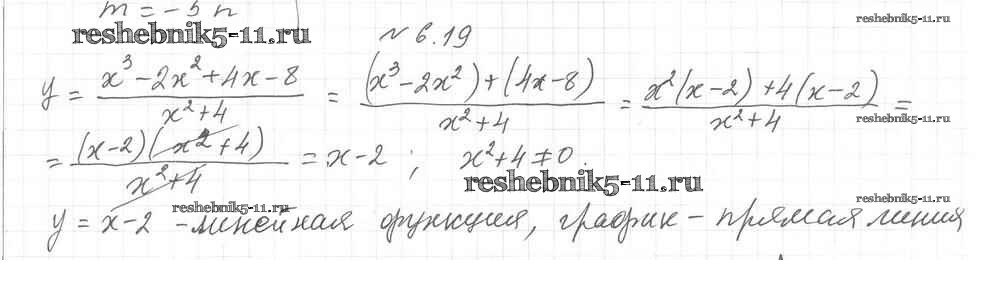 m = -5n
reshebnik5-11.ru
reshebnik5-11.ru
№ 6.19
y = (x³-2x²+4x-8)/(x²+4) = ((x³-2x²)+(4x-8))/(x²+4) = (x²(x-2)+4(x-2))/(x²+4) =
reshebnik5-11.ru
= ((x-2)(x²+4))/(x²+4) = x-2 ; x²+4≠0.
reshebnik5-11.ru
reshebnik5-11.ru
reshebnik5-11.ru
y = x-2 - линейная функция, график - прямая линия